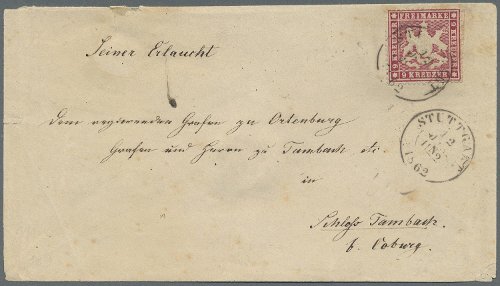 FREIMARKE
9 KREUZER
9 KREUZER
9 KREUZER
Seiner Erlaucht
Dem regierenden Grafen zu Ortenburg
Grafen und Herrn zu Tambach etc.
in
Schloss Tambach
b. Coburg.
STUTTGART
12
1862